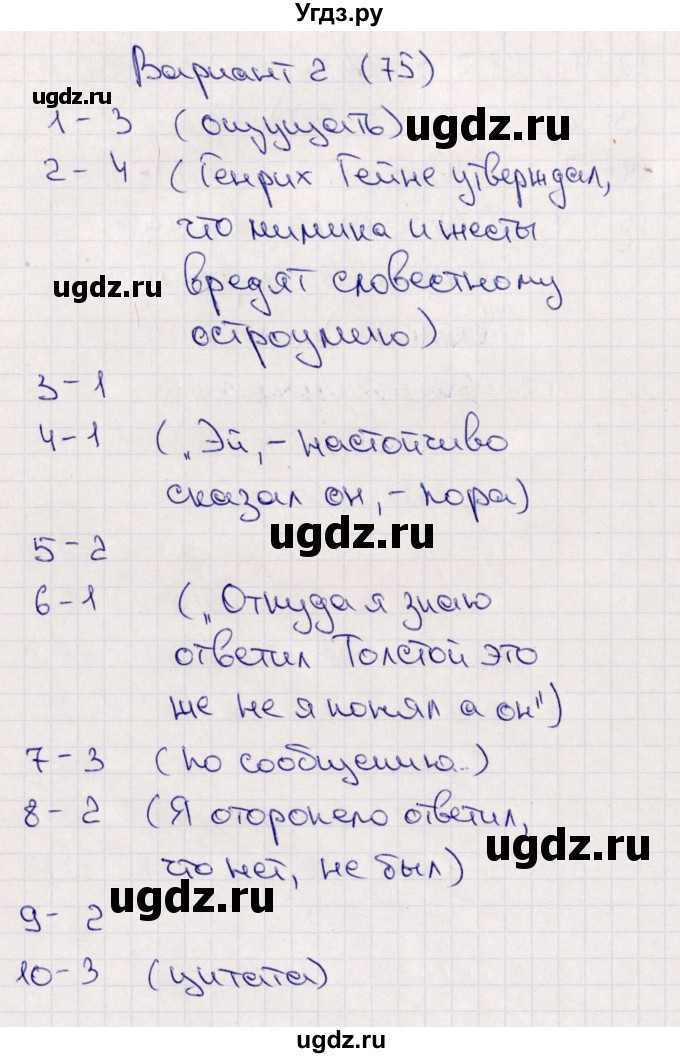 Угдз.ру
Вариант 2 (75)
ugdz.ru
1 - 3 (ощущать) ugdz.ru
2 - 4 (Генрих Гейне утверждал,
что мимика и жесты
ugdz.ru вредят словестному
остроумию)
3 - 1
4 - 1 („Эй, - настойчиво
сказал он, - пора)
ugdz.ru
5 - 2
6 - 1 („Откуда я знаю
ответил Толстой это
же не я понял а он")
7 - 3 (по сообщению..)
8 - 2 (Я оторопело ответил,
ugdz.ru
что нет, не был)
ugdz.ru
9 - 2
10 - 3 (цитата)
ugdz.ru